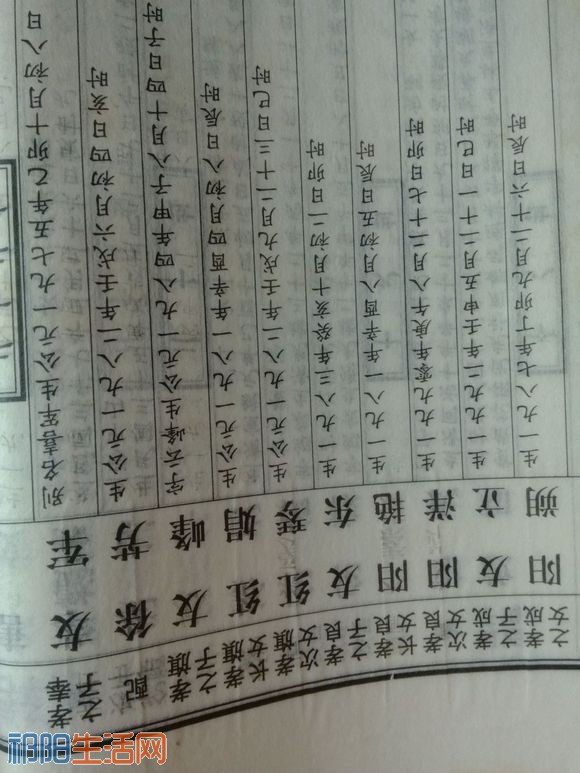 孝奉之子 友军 别名喜军生公元一九七五年乙卯十月初八日
配 徐芳 生公元一九八二年壬戌六月初四日亥时
孝旗之子 友峰 字云峰生公元一九八四年甲子八月十四日子时
孝旗长女 红娟 生公元一九八一年辛酉四月初八日辰时
孝旗次女 红琴 生公元一九八二年壬戌九月二十三日巳时
孝良之子 友东 生一九八三年癸亥十月初二日卯时
孝良长女 阳艳 生一九八一年辛酉八月初五日辰时
孝良次女 阳洋 生一九九零年庚午八月二十七日卯时
孝成之子 友立 生一九九二年壬申五月二十一日巳时
孝成之女 阳朔 生一九八七年丁卯九月二十六日辰时
祁阳生活网